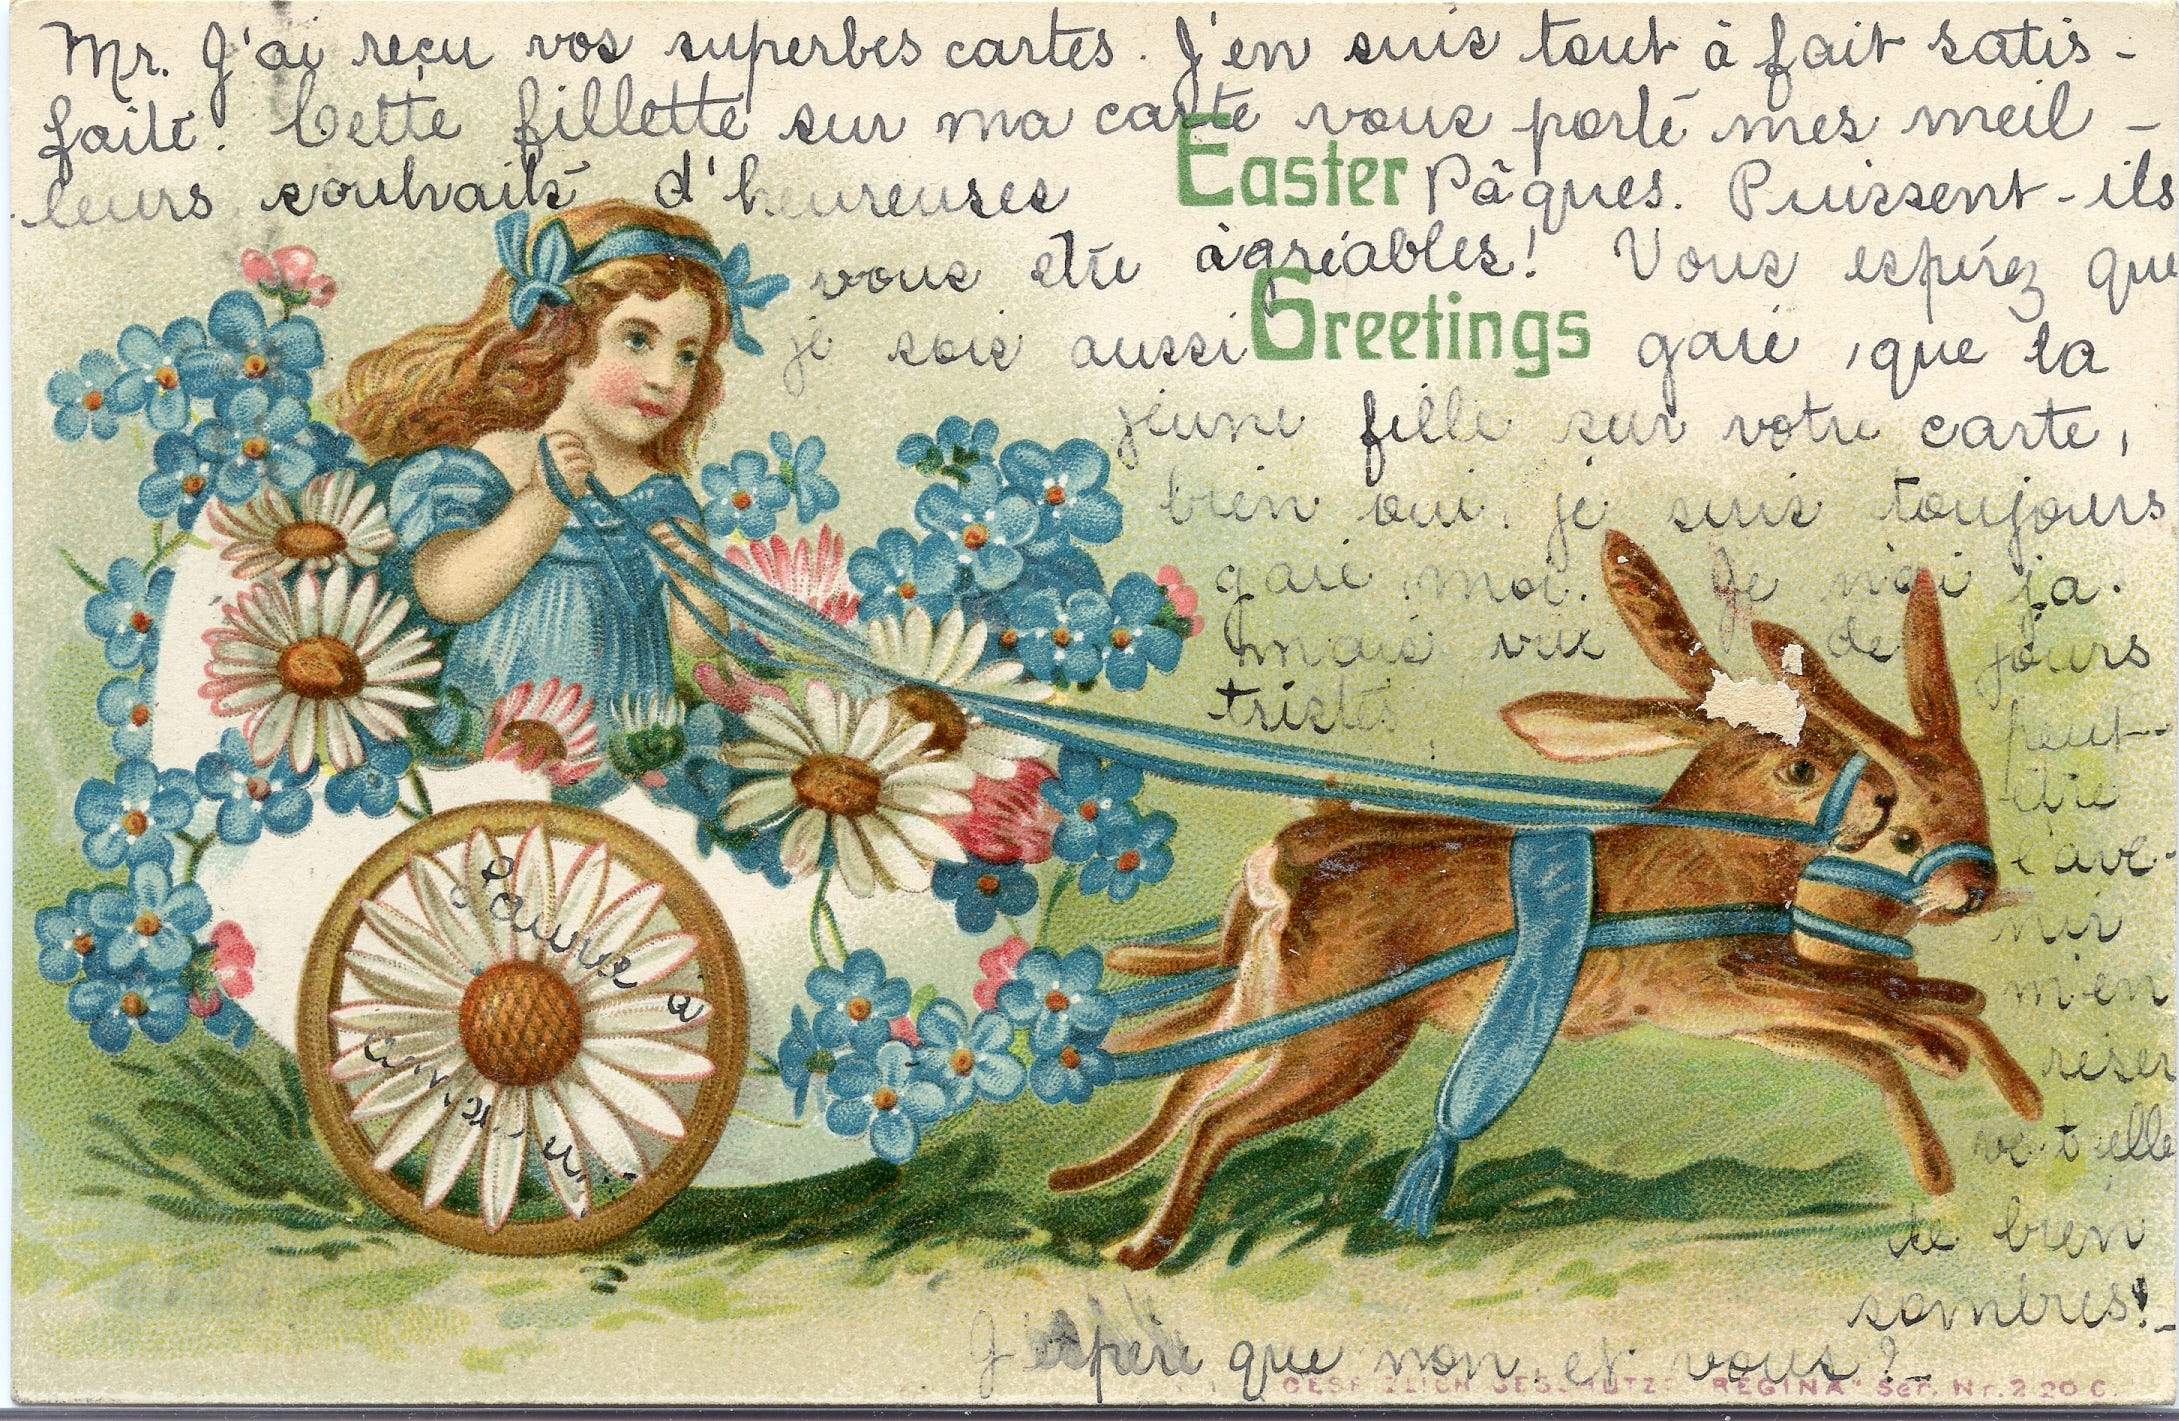 Mr. J'ai reçu vos superbes cartes. J'en suis tout à fait satis-
faite. Cette fillette sur ma carte vous porte mes meil-
leurs souhaits d'heureuses Easter Pâques. Puissent-ils
vous être agréables! Vous espérez que
je sois aussi Greetings gaie, que la
jeune fille sur votre carte,
bien oui, je suis toujours
gaie, moi. Je n'ai ja-
mais vu de jours
tristes,
peut-
être
l'ave-
nir
m'en
réser
ve-t-elle
de bien
sombres!
J'espère que non, et vous?
GESETZLICH GESCHÜTZT "REGINA" Ser. Nr. 220 C.